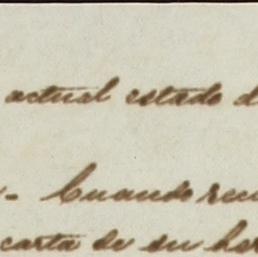 actual estado d
- Cuando reci
carta de su her